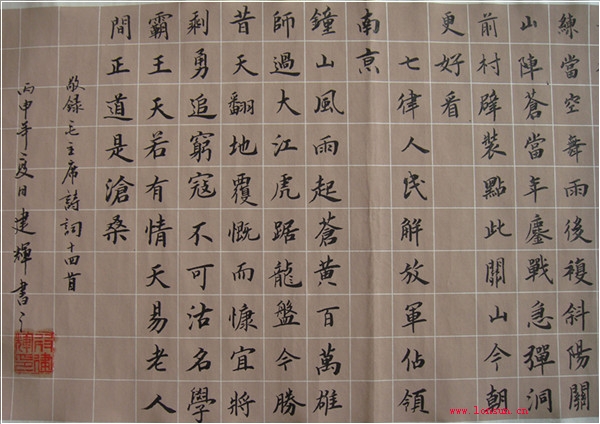 練當空舞雨後複斜陽關
山陣蒼當年鏖戰急彈洞
前村壁裝點此關山今朝
更好看
七律人民解放軍佔領
南京
鐘山風雨起蒼黃百萬雄
師過大江虎踞龍盤今勝
昔天翻地覆慨而慷宜將
剩勇追窮寇不可沽名學
霸王天若有情天易老人
間正道是滄桑
敬錄毛主席詩詞十四首
丙申年夏日建輝書之
www.lonsum.cn